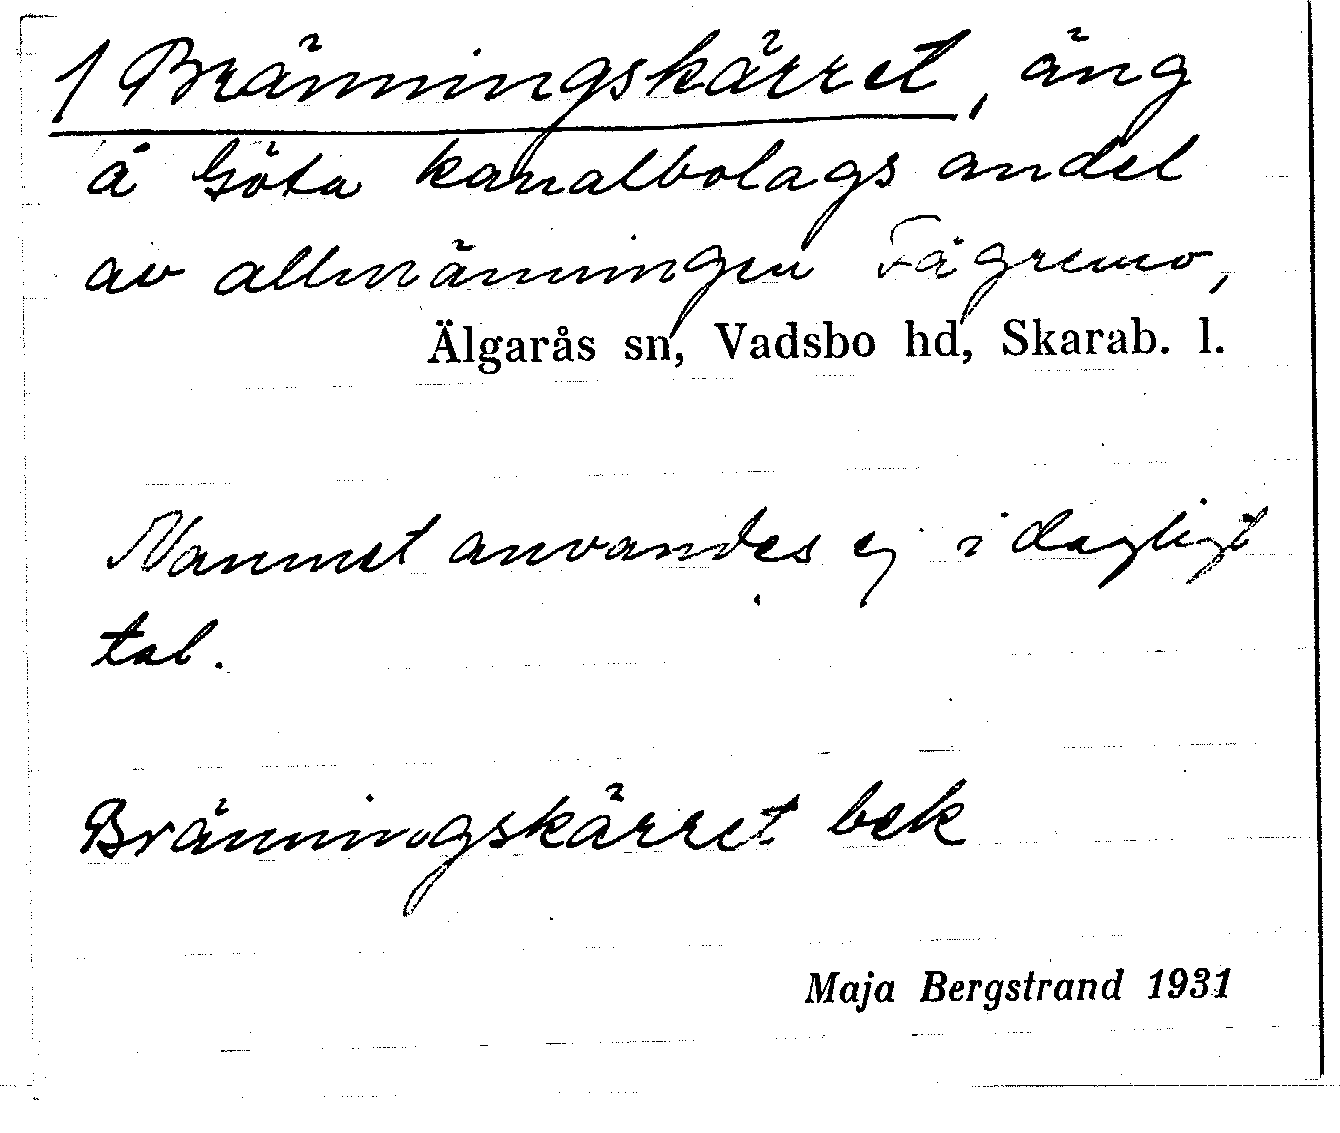 1 Bränningskärret, äng
å Göta kanalbolags andel
av allmänningen Fägremo,
Älgarås sn, Vadsbo hd, Skarab. l.
Namnet användes ej i dagligt
tal.
Bränningskärret bek
Maja Bergstrand 1931